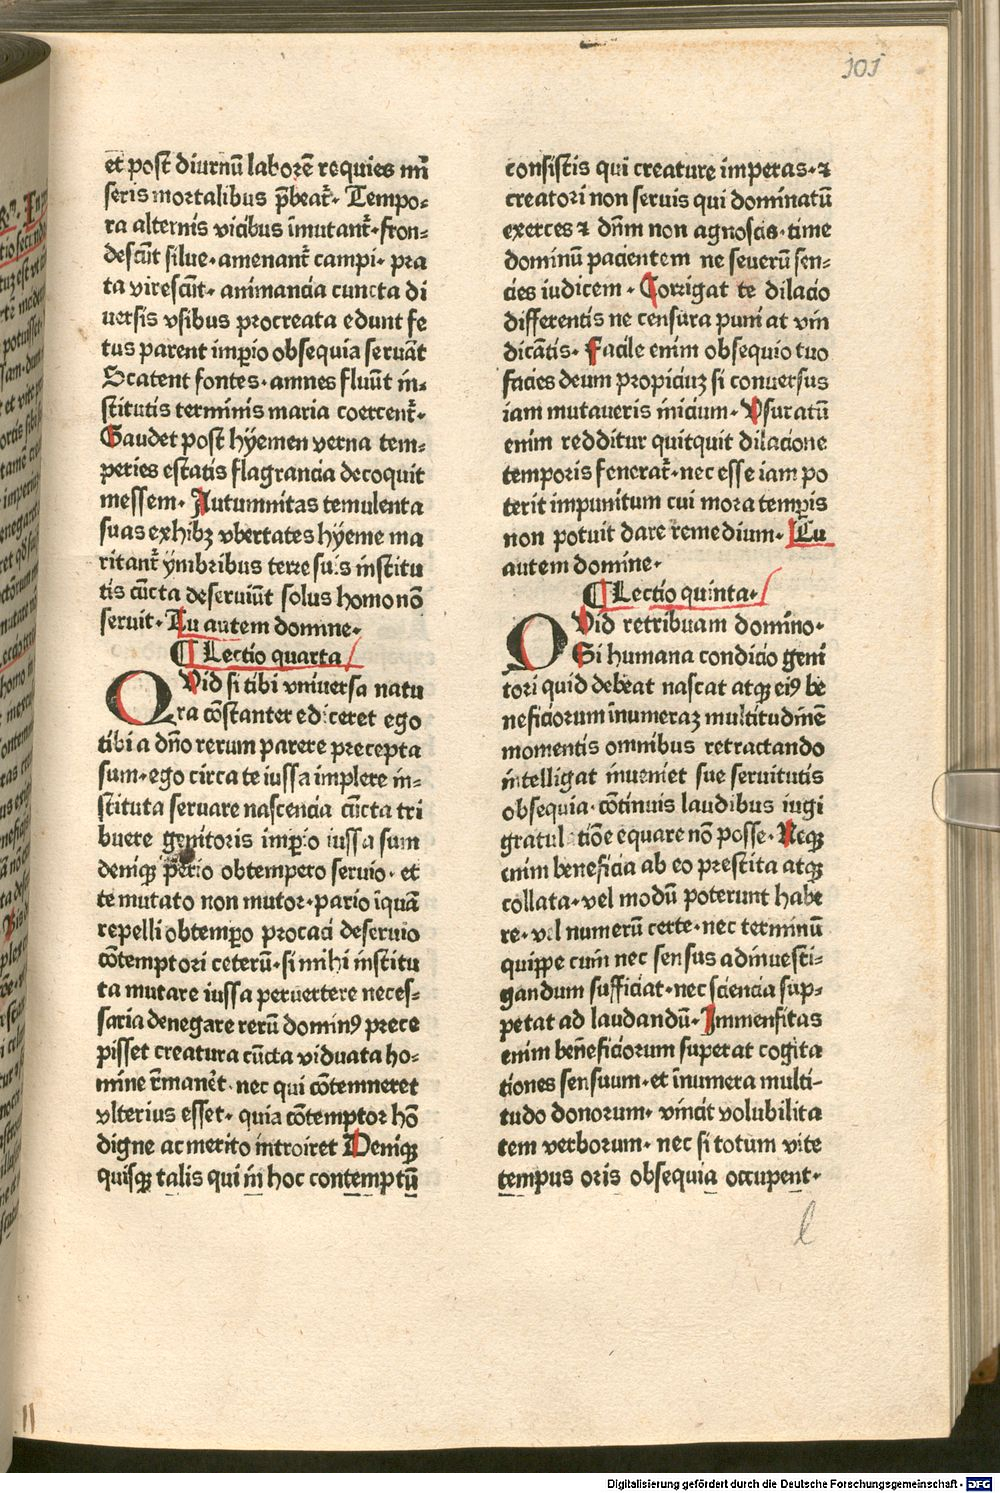 101
et post diurnū laborē requies mi
seris mortalibus p̄beat᷑. Tempo⸗
ra alternis vicibus īmutant᷑. fron⸗
descūt silue. amenant᷑ campi. pra
ta virescūt. animancia cuncta di
uersis vsibus procreata edunt fe
tus parent imꝑio obsequia seruāt
Scatent fontes. amnes fluūt in⸗
stitutis terminis maria coercent᷑.
Gaudet post hyemen verna tem⸗
peries estatis flagrancia decoquit
messem. Autumnitas temulenta
suas exhibꝫ vbertates hyeme ma
ritant᷑ ymbribus terre suis institu
tis cūcta deseruiūt solus homo nō
seruit. Tu autem domine.
¶ Lectio quarta
QVid si tibi vniuersa natu
ra cōstanter ediceret ego
tibi a dño rerum parere precepta
sum. ego circa te iussa implere in⸗
stituta seruare nascencia cūcta tri
buere genitoris imꝑio iussa sum
deniqꝫ perio obtempero seruio. et
te mutato non mutor. pario iquā
repelli obtemꝑo procaci deseruio
cōtemptori ceterū. si mihi institu
ta mutare iussa peruertere neces⸗
saria denegare rerū dominꝰ prece
pisset creatura cūcta viduata ho⸗
mine r̄manēt. nec qui cōtemneret
vlterius esset. quia cōtemptor hō
digne ac merito introiret Deniqꝫ
quisqꝫ talis qui in hoc contemptū
consistis qui creature imperas. ⁊
creatori non seruis qui dominatū
exerces ⁊ dn̄m non agnoscis. time
dominū pacientem ne seuerū sen⸗
cies iudicem. Corrigat te dilacio
differentis ne censura puniat vin
dicātis. Facile enim obsequio tuo
facies deum propiciuꝫ si conuersus
iam mutaueris inicium. Vsuratū
enim redditur quitquit dilacione
temporis fenerat᷑. nec esse iam po
terit impunitum cui mora temꝑis
non potuit dare remedium. Tu
autem domine.
¶ Lectio quinta.
QVid retribuam domino.
Si humana condicio geni
tori quid debeat nascat atqꝫ eiꝰ be
neficiorum inumeraꝫ multitudinē
momentis omnibus retractando
intelligat inueniet sue seruitutis
obsequia. cōtinuis laudibus iugi
gratulatiōe equare nō posse. Neqꝫ
enim beneficia ab eo prestita atqꝫ
collata. vel modū poterunt habe
re. vel numerū certe. nec terminū
quippe cum nec sensus adinuesti⸗
gandum sufficiat. nec sciencia sup⸗
petat ad laudandū. Immensitas
enim beneficiorum superat cogita
tiones sensuum. et inumera multi⸗
tudo donorum. vincit volubilita
tem verborum. nec si totum vite
tempus oris obsequia occupent.
l
Digitalisierung gefördert durch die Deutsche Forschungsgemeinschaft - DFG